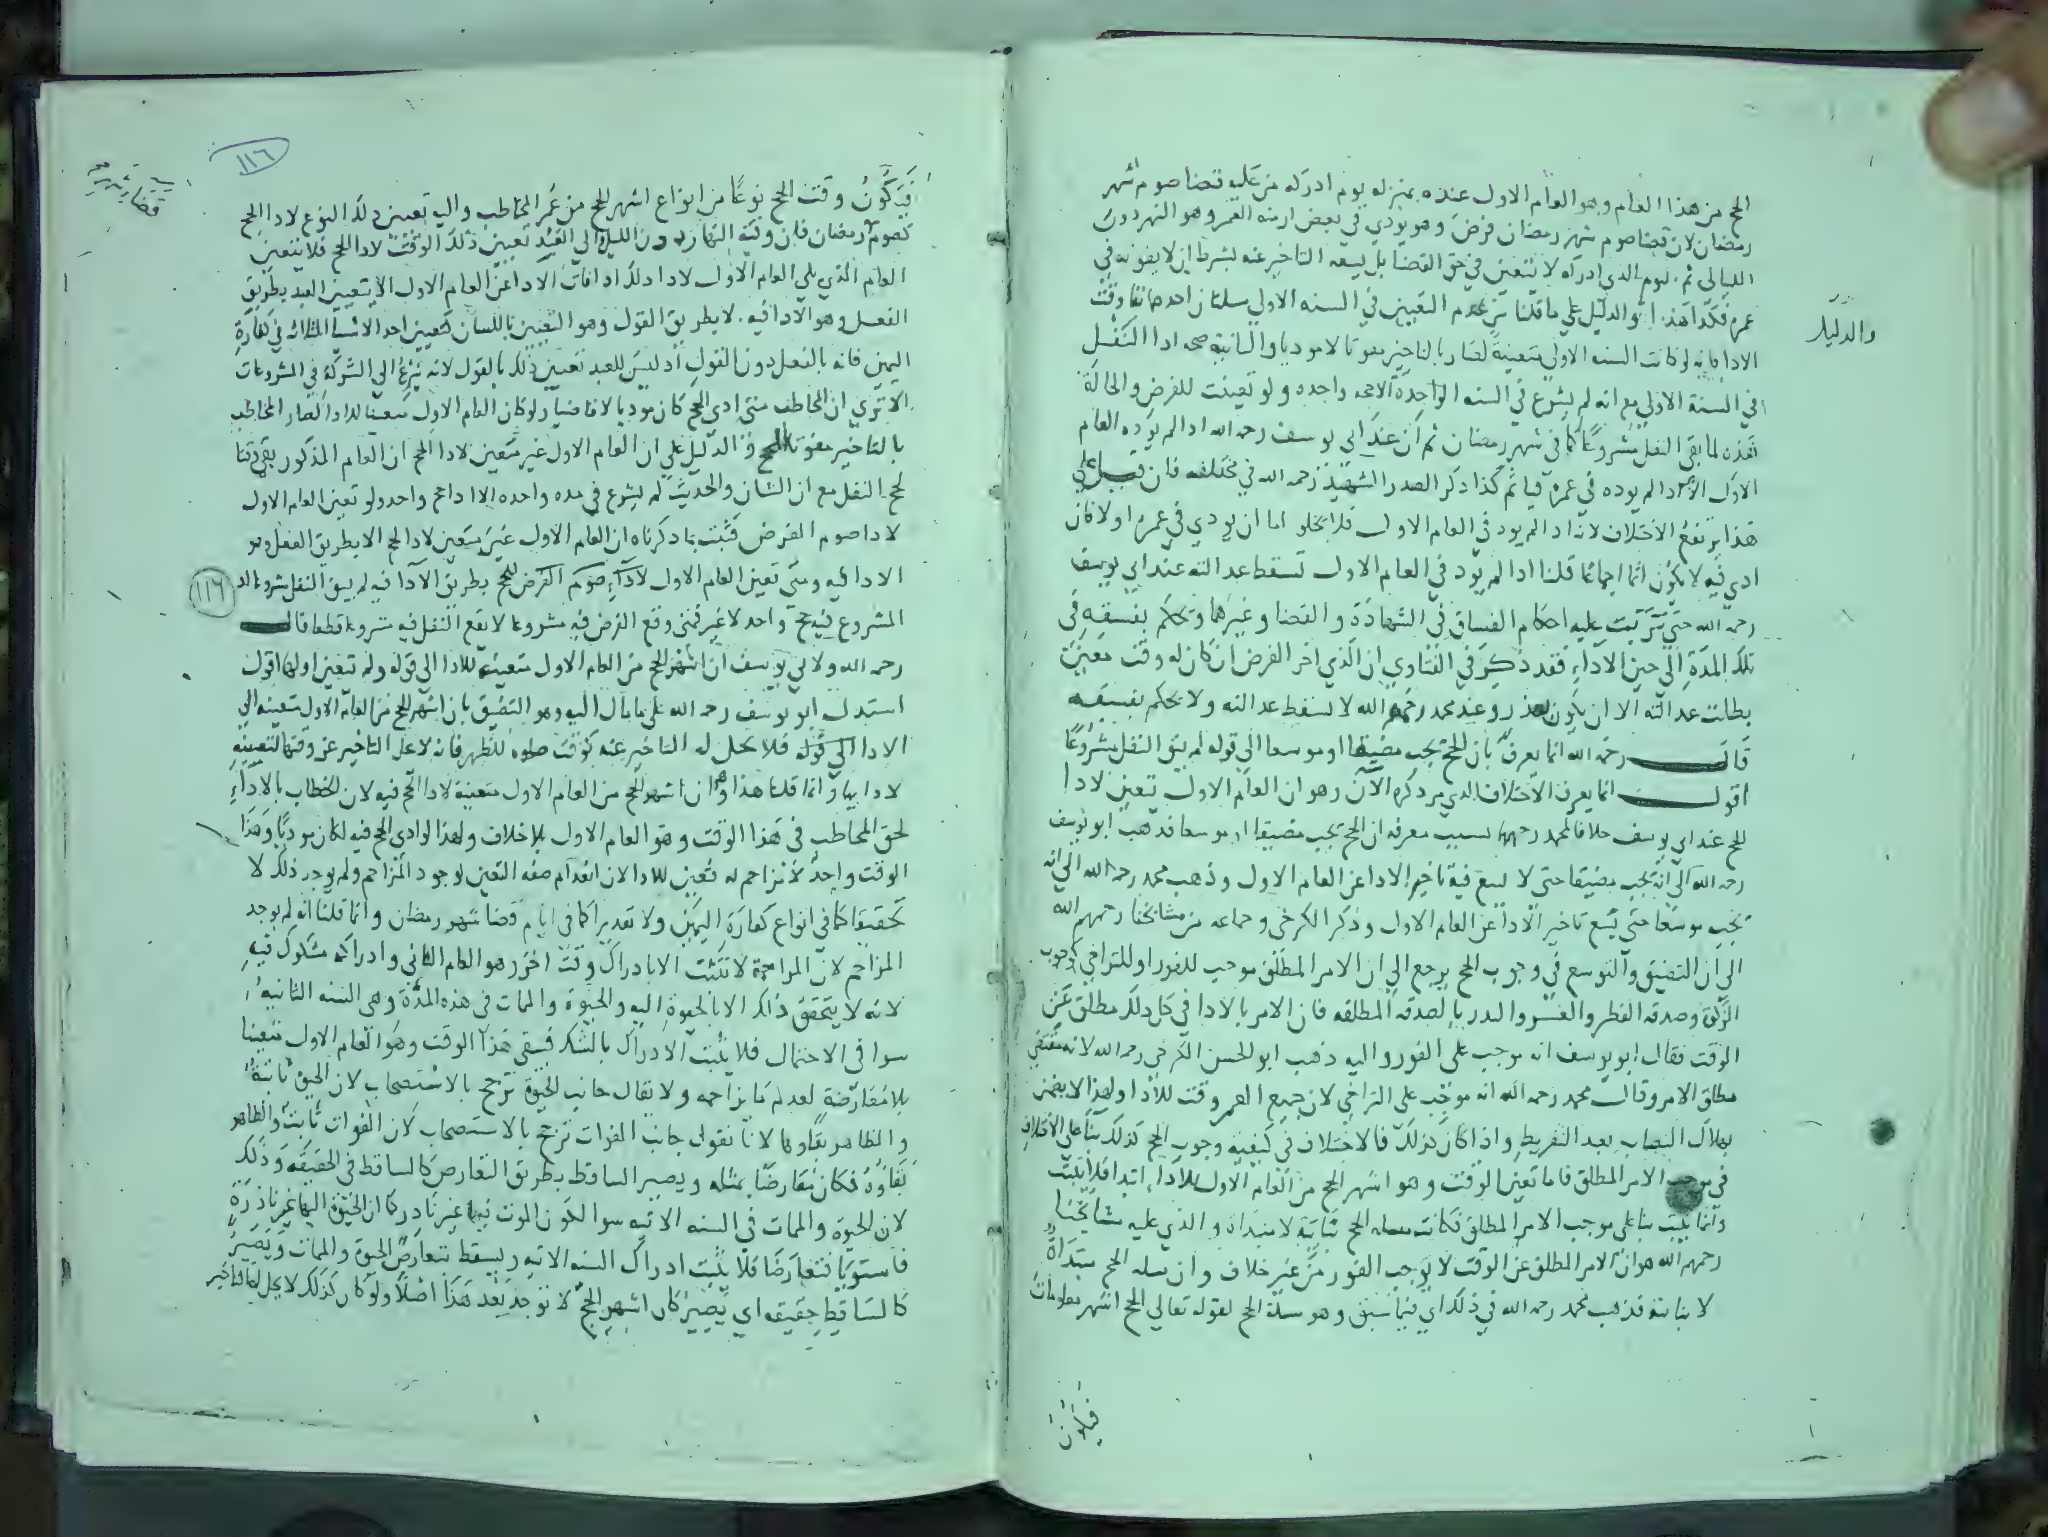 الحج من هذا العام وهو العام الاول عنده بمنزله يوم ادركه من عليه قضا صوم شهر
رمضان لان قضا صوم شهر رمضان فرض وهو يودي في بعض ازمنه العمر وهو النهر دون
الليالي ثم اليوم الذي ادركه لا يتعين في حق القضا بل يسعه التاخير عنه بشرط ان لا يفوته في
عمره فكذا هذا والدليل علي ما قلنا من عدم التعيين في السنه الاولي سلمان احدهما بقا وقت
والدليل
الادا فانه لو كانت السنه الاولي متعينة لصار بالتاخير مفوتا لا موديا والثانية صحه ادا النفل
في السنة الاولي مع انه لم يشرع في السنه الواحدة الا حجه واحده ولو تعينت للفرض والحالة
هذه لما بقي النفل مشروعا كما في شهر رمضان ثم ان عند ابي يوسف رحمه الله اذا لم يوده العام
الاول اذا لم يوده في عمره فيأثم كذا ذكر الصدر الشهيد رحمه الله في مختلفه فان قيل علي
هذا يرتفع الاختلاف لانه اذا لم يود في العام الاول فلا يخلو اما ان يودي في عمره او لا فان
ادي فيه لا يكون اثما اجماعا قلنا اذا لم يود في العام الاول تسقط عدالته عند ابي يوسف
رحمه الله حتي تترتب عليه احكام الفساق في الشهادة والقضا وغيرهما ويحكم بفسقه في
تلك المدة الي حين الاداء فقد ذكر في الفتاوي ان الذي اخر الفرض ان كان له وقت معين
بطلت عدالته الا ان يكون بعذر وعند محمد رحمه الله لا تسقط عدالته ولا يحكم بفسقه
قال رحمه الله انما يعرف بان الحج يجب مضيقا او موسعا الي قوله لم يبق النفل مشروعا
اقول انما يعرف الاختلاف الذي مر ذكره الان وهو ان العام الاول تعين لادا
الحج عند ابي يوسف خلافا لمحمد رحمهما الله بسبب معرفه ان الحج يجب مضيقا او موسعا فذهب ابو يوسف
رحمه الله الي انه يجب مضيقا حتي لا يسع فيه تاخير الادا عن العام الاول وذهب محمد رحمه الله الي انه
يجب موسعا حتي يسع تاخير الادا عن العام الاول وذكر الكرخي وجماعه من مشائخنا رحمهم الله
الي ان التضيق والتوسع في وجوب الحج يرجع الي ان الامر المطلق موجب للفور او للتراخي كوجوب
الزكوة وصدقه الفطر والعشر والنذر بالصدقه المطلقه فان الامر بالادا في كل ذلك مطلق عن
الوقت فقال ابو يوسف انه موجب علي الفور واليه ذهب ابو الحسن الكرخي رحمه الله لانه مقتضي
مطلق الامر وقال محمد رحمه الله انه موجب علي التراخي لان جميع العمر وقت للادا ولهذا لا يضمن
بهلاك النصاب بعد التفريط واذا كان كذلك فالاختلاف في كيفيه وجوب الحج كذلك بنا علي الاختلاف
في موجب الامر المطلق فاما تعين الوقت وهو اشهر الحج من العام الاول للاداء ابتدا فلا يثبت
وانما يثبت بنا علي موجب الامر المطلق فكانت مسله الحج بنائية لا مبتداة والذي عليه مشائخنا
رحمهم الله هو ان الامر المطلق عن الوقت لا يوجب الفور من غير خلاف وان مسله الحج مبتداة
لا بنائية فذهب محمد رحمه الله في ذلك اي فيما سبق وهو مسلة الحج لقوله تعالي الحج اشهر معلومات
فيكون
١١٦
فيكون وقت الحج نوعا من انواع اشهر الحج من عمر المخاطب واليه تعيين ذلك النوع لادا الحج
كصوم رمضان فان وقته النهار دون الليل الي العبد تعيين ذلك الوقت لادا الحج فلا يتعين
قضاء شهر
العام الذي يلي العام الاول لادا ذلك اذا فات الادا عن العام الاول الا بتعيين العبد بطريق
الفعل وهو الادا فيه لا بطريق القول وهو التعيين باللسان كتعيين احد الاشيا الثلاثه في كفارة
اليمين فانه بالفعل دون القول اذ ليس للعبد تعيين ذلك بالقول لانه ينزع الي الشركة في المشروعات
الا تري ان المخاطب متي ادي الحج كان موديا لا قاضيا ولو كان العام الاول متعينا للادا لصار المخاطب
بالتاخير مفوتا للحج والدليل علي ان العام الاول غير متعين لادا الحج ان العام المذكور بقي وقتا
لحج النفل مع ان الشان والحديث لم يشرع في مده واحده الا ادا حج واحد ولو تعين العام الاول
لادا صوم الفرض فثبت بما ذكرناه ان العام الاول غير متعين لادا الحج الا بطريق الفعل وهو
الادا فيه ومتي تعين العام الاول لاداء صوم الفرض للحج بطريق الادا فيه لم يبق النفل مشروعا لان
١١٦
المشروع فيه حج واحد لا غير فمتي وقع الفرض فيه مشروعا لا يقع النفل فيه مشروعا قطعا قال
رحمه الله ولابي يوسف ان اشهر الحج من العام الاول متعينه للادا الي قوله ولم تتعين اولها اقول
استدل ابو يوسف رحمه الله علي ما مال اليه وهو التضيق بان اشهر الحج من العام الاول متعينه الي
الادا الي قوله فلا يحل له التاخير عنه كوقت صلوه الظهر فانه لا يحل التاخير عن وقتها لتعينه
لادايها وانما قلنا هذا وهو ان اشهر الحج من العام الاول متعينة لادا الحج فيه لان الخطاب بالاداء
لحق المخاطب في هذا الوقت وهو العام الاول بلا خلاف ولهذا لو ادي الحج فيه لكان موديا وهذا
الوقت واحد لا مزاحم له فتعين للادا لان انعدام صفه التعين لوجود المزاحم ولم يوجد ذلك لا
تحقيقا كما في انواع كفارة اليمين ولا تقديرا كما في ايام قضا شهر رمضان وانما قلنا انه لم يوجد
المزاحم لان المزاحمة لا تثبت الا بادراك وقت اخر وهو العام الثاني وادراكه مشكوك فيه
لانه لا يتحقق ذلك الا بالحيوة اليه والحيوة والممات في هذه المدة وهي السنه الثانية
سوا في الاحتمال فلا يثبت الادراك بالشك فبقي هذا الوقت وهو العام الاول متعينا
بلا معارضة لعدم ما يزاحمه ولا يقال جانب الحيوة ترجح بالاستصحاب لان الحيوة ثابتة
والظاهر بقاوها لانا نقول جانب الفوات ترجح بالاستصحاب لان الفوات ثابت والظاهر
بقاؤه فكان معارضا بمثله ويصير الساقط بطريق التعارض كالساقط في الحقيقه وذلك
لان الحيوة والممات في السنه الاتيه سوا لكون الموت فيها غير نادر كما ان الحيوة اليها غير نادرة
فاستويا فتعارضا فلا يثبت ادراك السنه الاتيه ويسقط بتعارض الحيوة والممات ويصير
كالساقط حقيقه اي يصير كان اشهر الحج لا توجد بعد هذا اصلا ولو كان كذلك لا يحل له التاخير